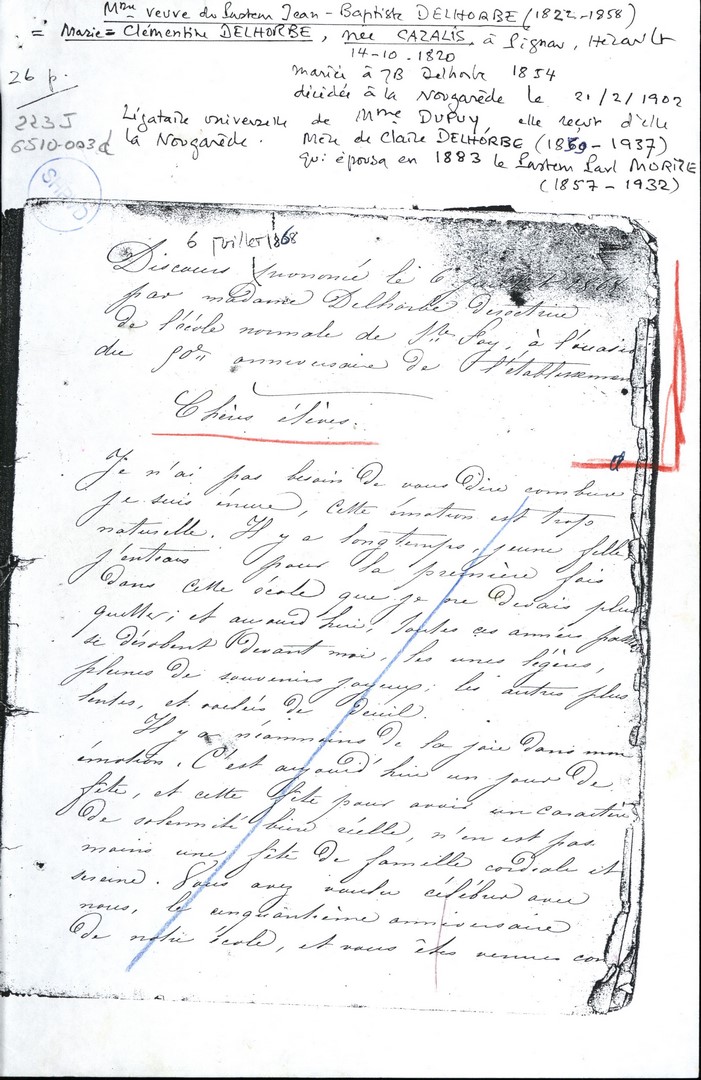 Mme veuve du Pasteur Jean-Baptiste DELHORBE (1822-1858)
= Marie = Clémentine DELHORBE, née CAZALIS, à Pignan, Hérault
14-10-1820
mariée à JB Delhorbe 1854
décédée à la Nougarède le 21/2/1902
26 p.
223J
6510-003d
Légataire universelle de Mme DUPUY elle reçut d'elle
la Nougarède. Mère de Claire DELHORBE (1859-1937)
qui épousa en 1883 le Pasteur Paul MORIZE
(1857-1932)
6 juillet 1868
Discours prononcé le 6 1868
par madame Delhorbe directrice
de l'école normale de Ste Foy, à l'occasion
du 50me anniversaire de l'établissement
Chères élèves.
Je n'ai pas besoin de vous dire combien
je suis émue, cette émotion est trop
naturelle. Il y a longtemps, jeune fille
j'entrais pour la première fois
dans cette école que je ne devais plus
quitter; et aujourd'hui, toutes ces années
se déroulent devant moi, les unes légères,
pleines de souvenirs joyeux; les autres plus
lentes, et voilées de deuil.
Il y a néanmoins de la joie dans mon
émotion. C'est aujourd'hui un jour de
fête, et cette fête pour avoir un caractère
de solennité bien réelle, n'en est pas
moins une fête de famille cordiale et
sereine. Vous avez voulu célébrer avec
nous, le cinquantième anniversaire
de notre école, et vous êtes venues